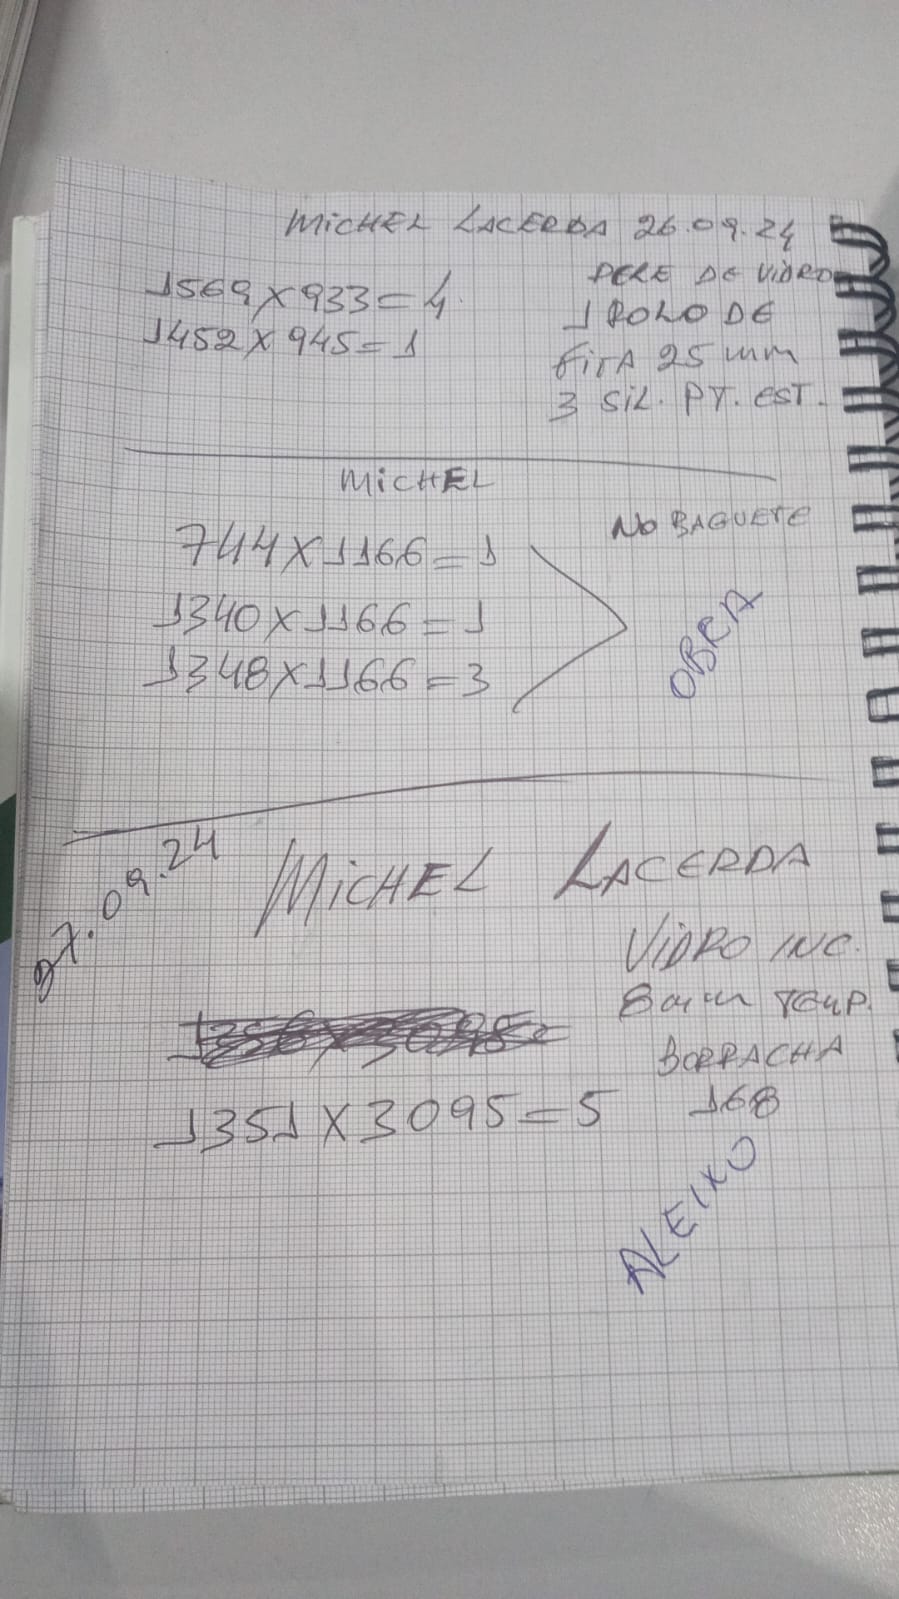 MICHEL LACERDA 26.09.24
1569 X 933 = 4
1452 X 945 = 1
PELE DE VIDRO
1 ROLO DE
FITA 25 mm
3 SIL. PT. EST.
MICHEL
744 X 1166 = 1
1340 X 1166 = 1
1348 X 1166 = 3
NO BAGUETE
OBRA
27.09.24
MICHEL LACERDA
VIDRO INC.
8 mm TEMP.
BORRACHA
168
1351 X 3095 = 5
ALEIXO